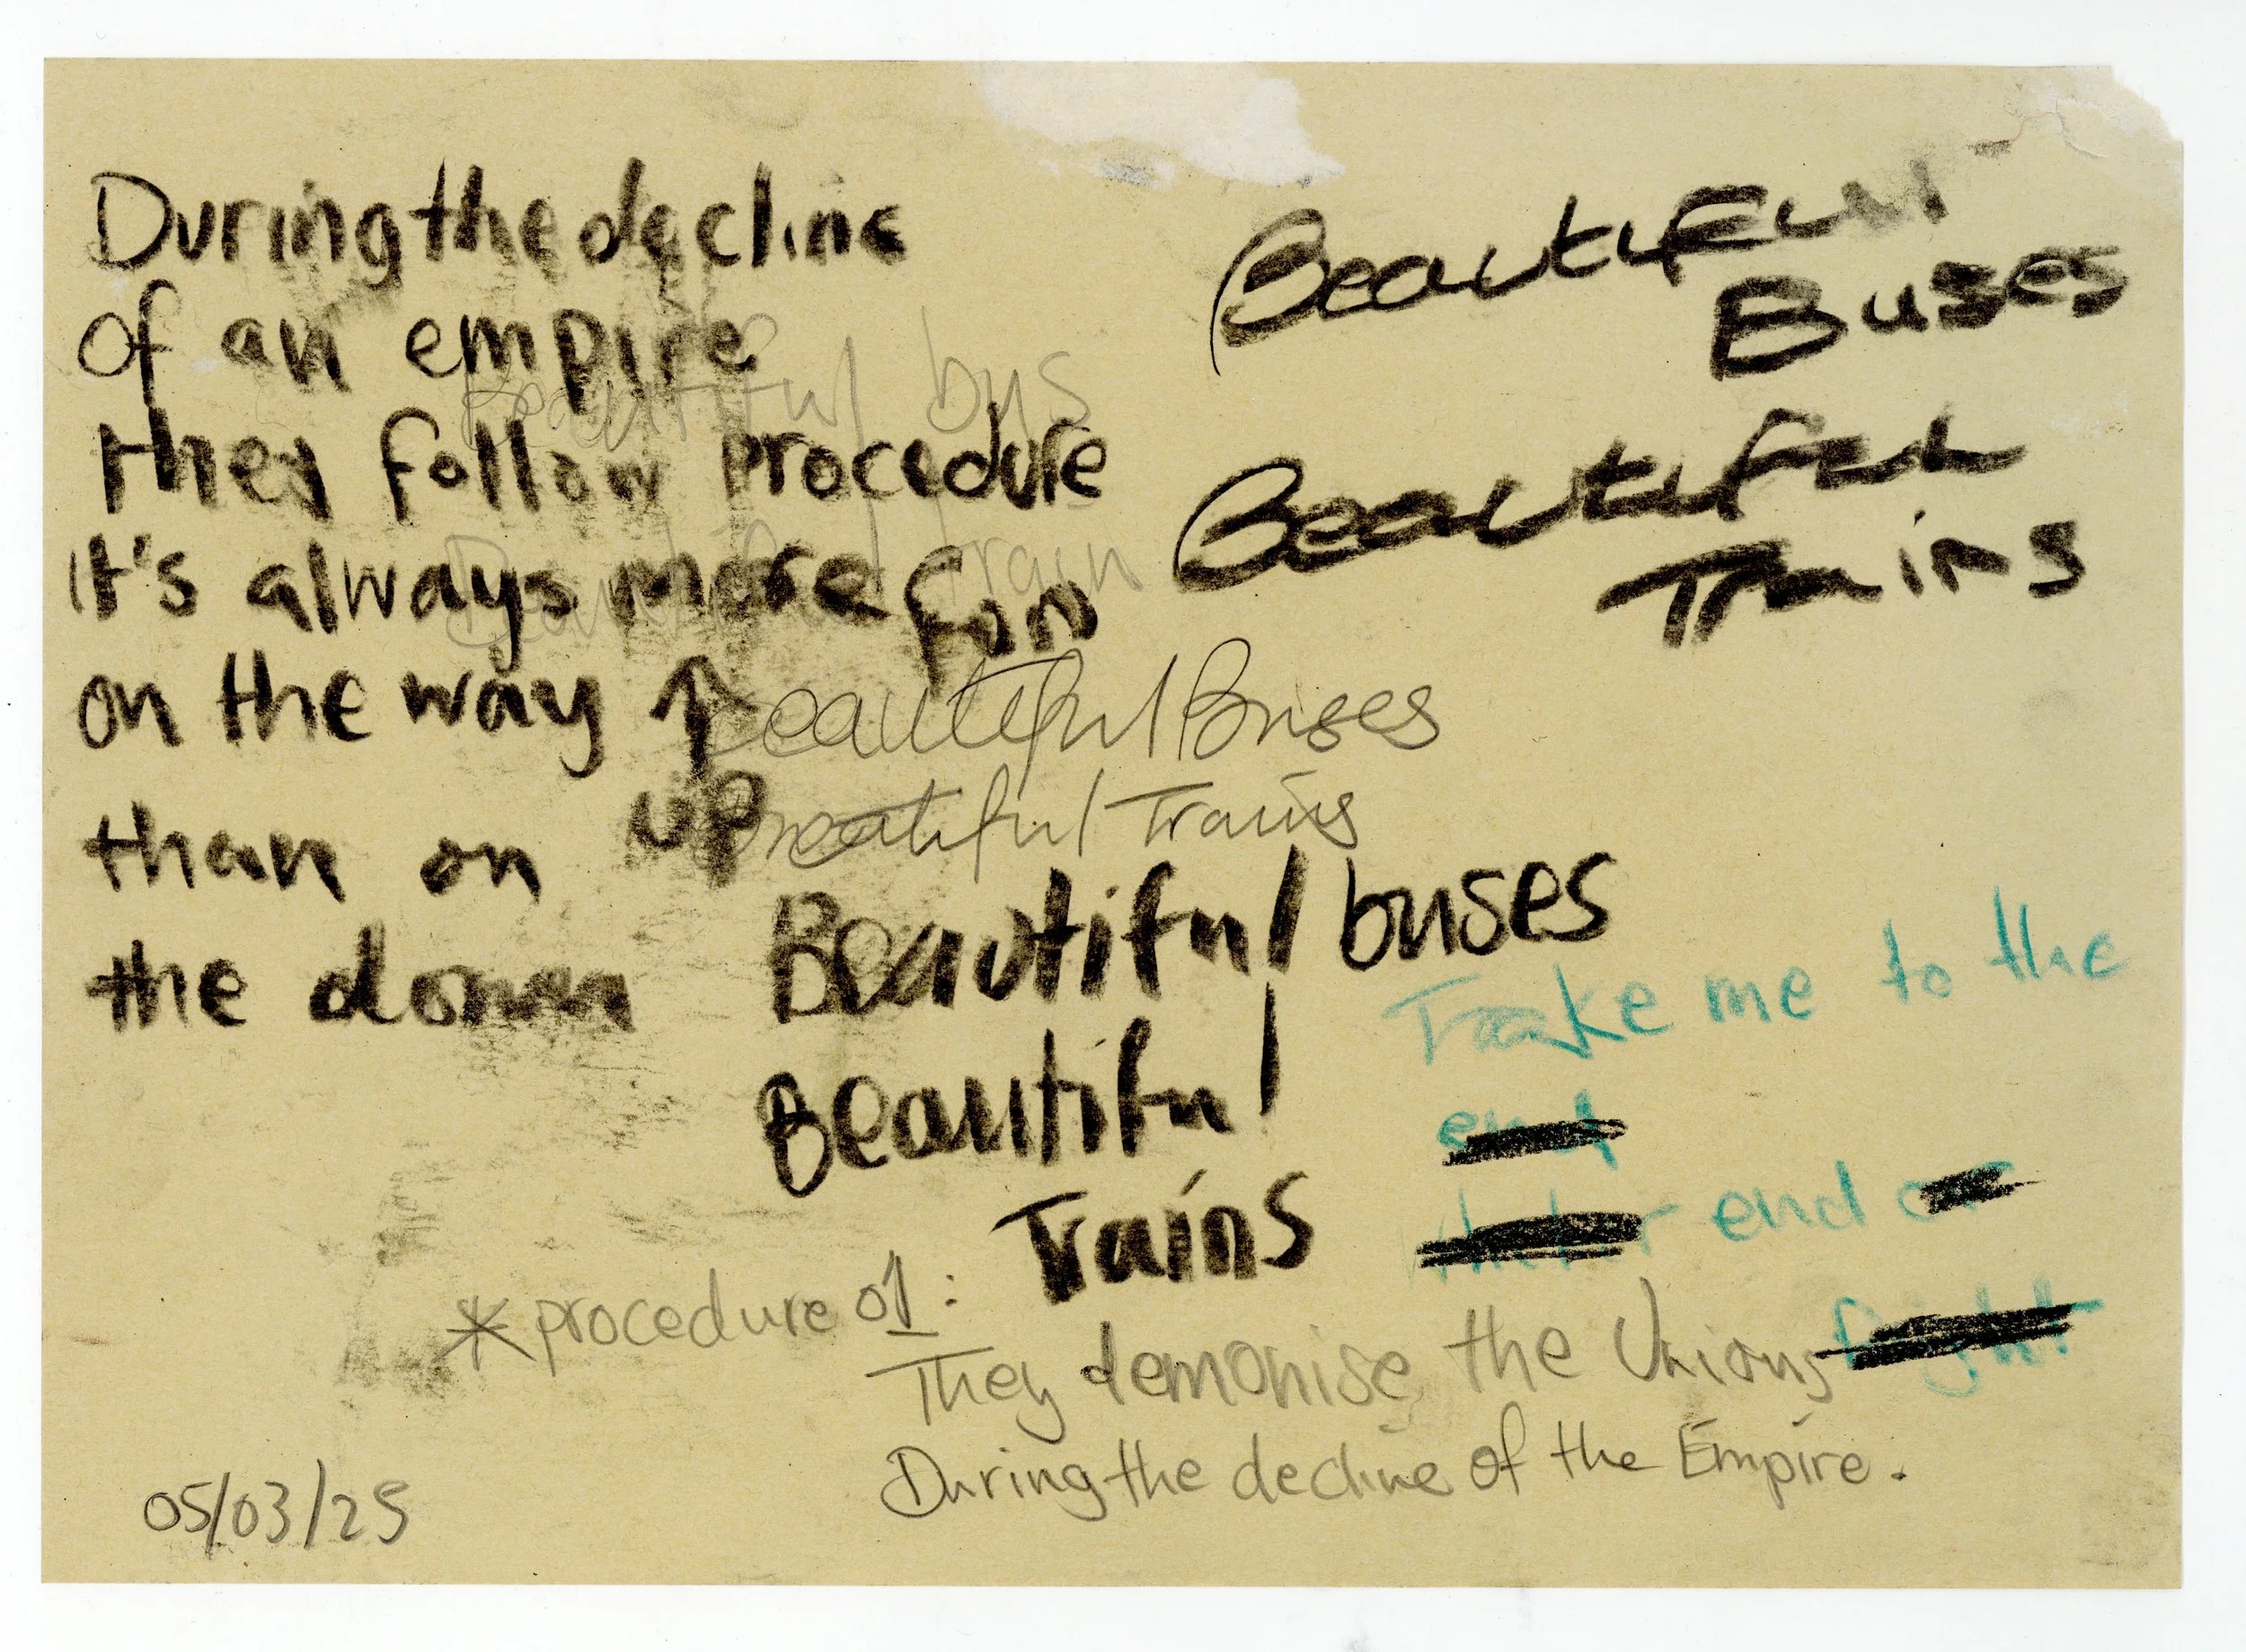 During the decline
of an empire
they follow procedure
It's always more fun
on the way ↑
up
than on
the down
Beautiful
Buses
Beautiful
Trains
Beautiful bus
Beautiful train
Beautiful Buses
Beautiful Trains
Beautiful buses
Beautiful
Trains
Take me to the
end
end
* procedure 01:
They demonise the Unions
During the decline of the Empire.
05/03/25